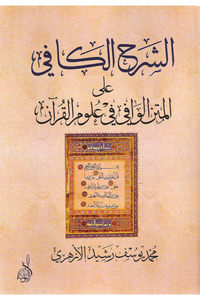 الشرح الكافي
على
المتن الوافي في علوم القرآن
محمد يوسف رشيد الأزهري